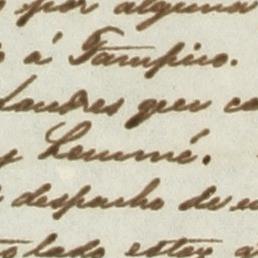 por alguna
á Tampico.
Londres que
y Lemmé.
despacho de
lado estar a